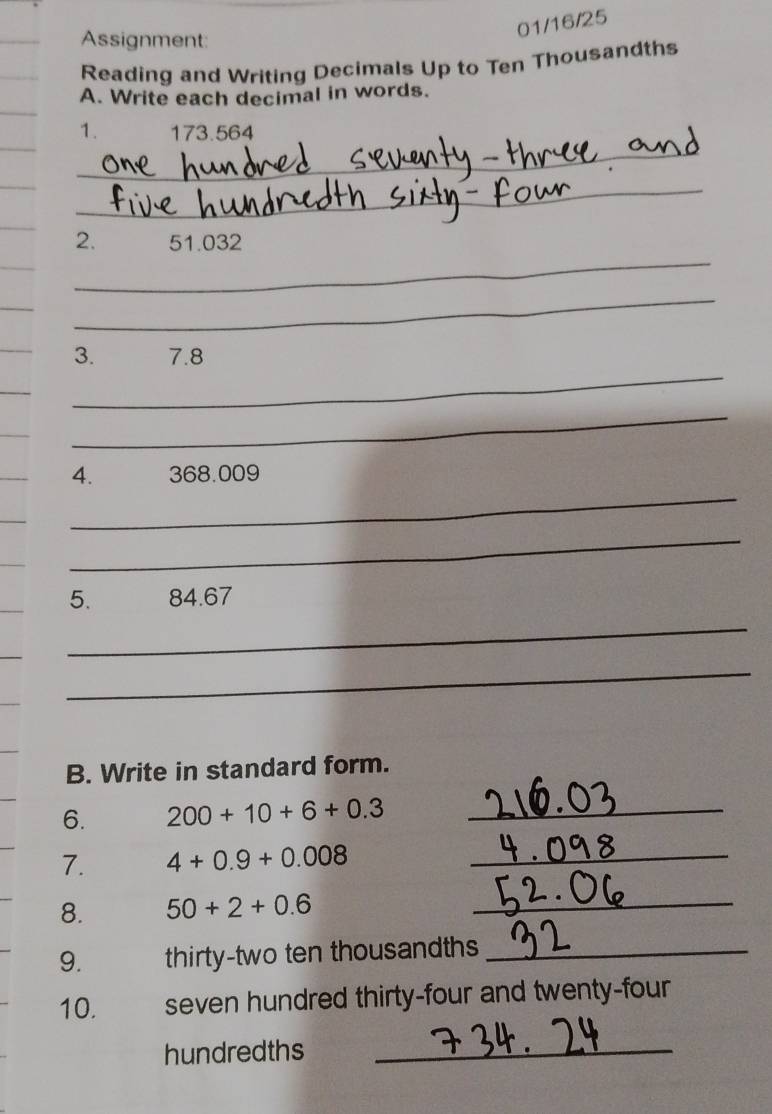 Assignment:
01/16/25
Reading and Writing Decimals Up to Ten Thousandths
A. Write each decimal in words.
1. 173.564
one hundred seventy-three and
five hundredth sixty-four
2. 51.032
3. 7.8
4. 368.009
5. 84.67
B. Write in standard form.
6. 200 + 10 + 6 + 0.3 216.03
7. 4 + 0.9 + 0.008 4.098
8. 50 + 2 + 0.6 52.06
9. thirty-two ten thousandths 32
10. seven hundred thirty-four and twenty-four
hundredths 734.24